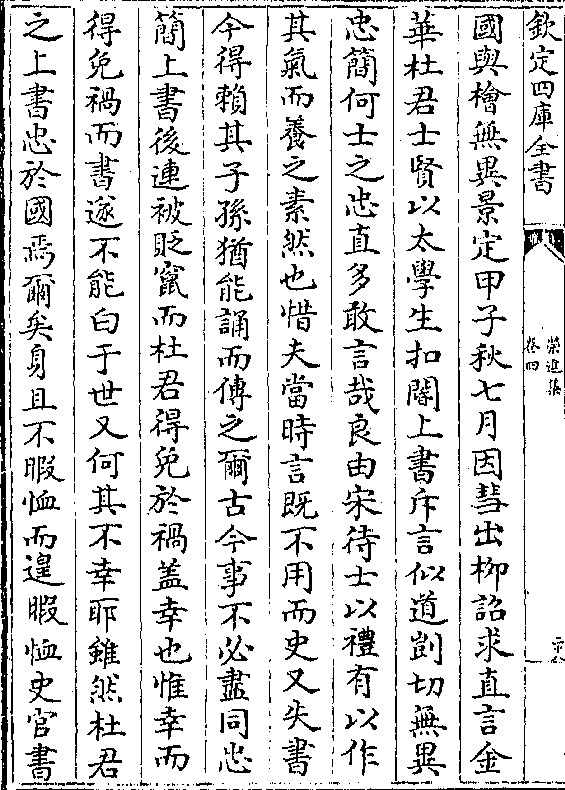 欽定四庫全書
榮進集
卷四
國與檜無異景定甲子秋七月因彗出栁詔求直言金
華杜君士賢以太學生扣閽上書斥言似道剴切無異
忠簡何士之忠直多敢言哉良由宋待士以禮有以作
其氣而養之素然也惜夫當時言既不用而史又失書
今得賴其子孫猶能誦而傳之爾古今事不必盡同忠
簡上書後連被貶竄而杜君得免於禍蓋幸也惟幸而
得免禍而書遂不能白于世又何其不幸耶雖然杜君
之上書忠於國焉爾矣身且不暇恤而遑暇恤史官書